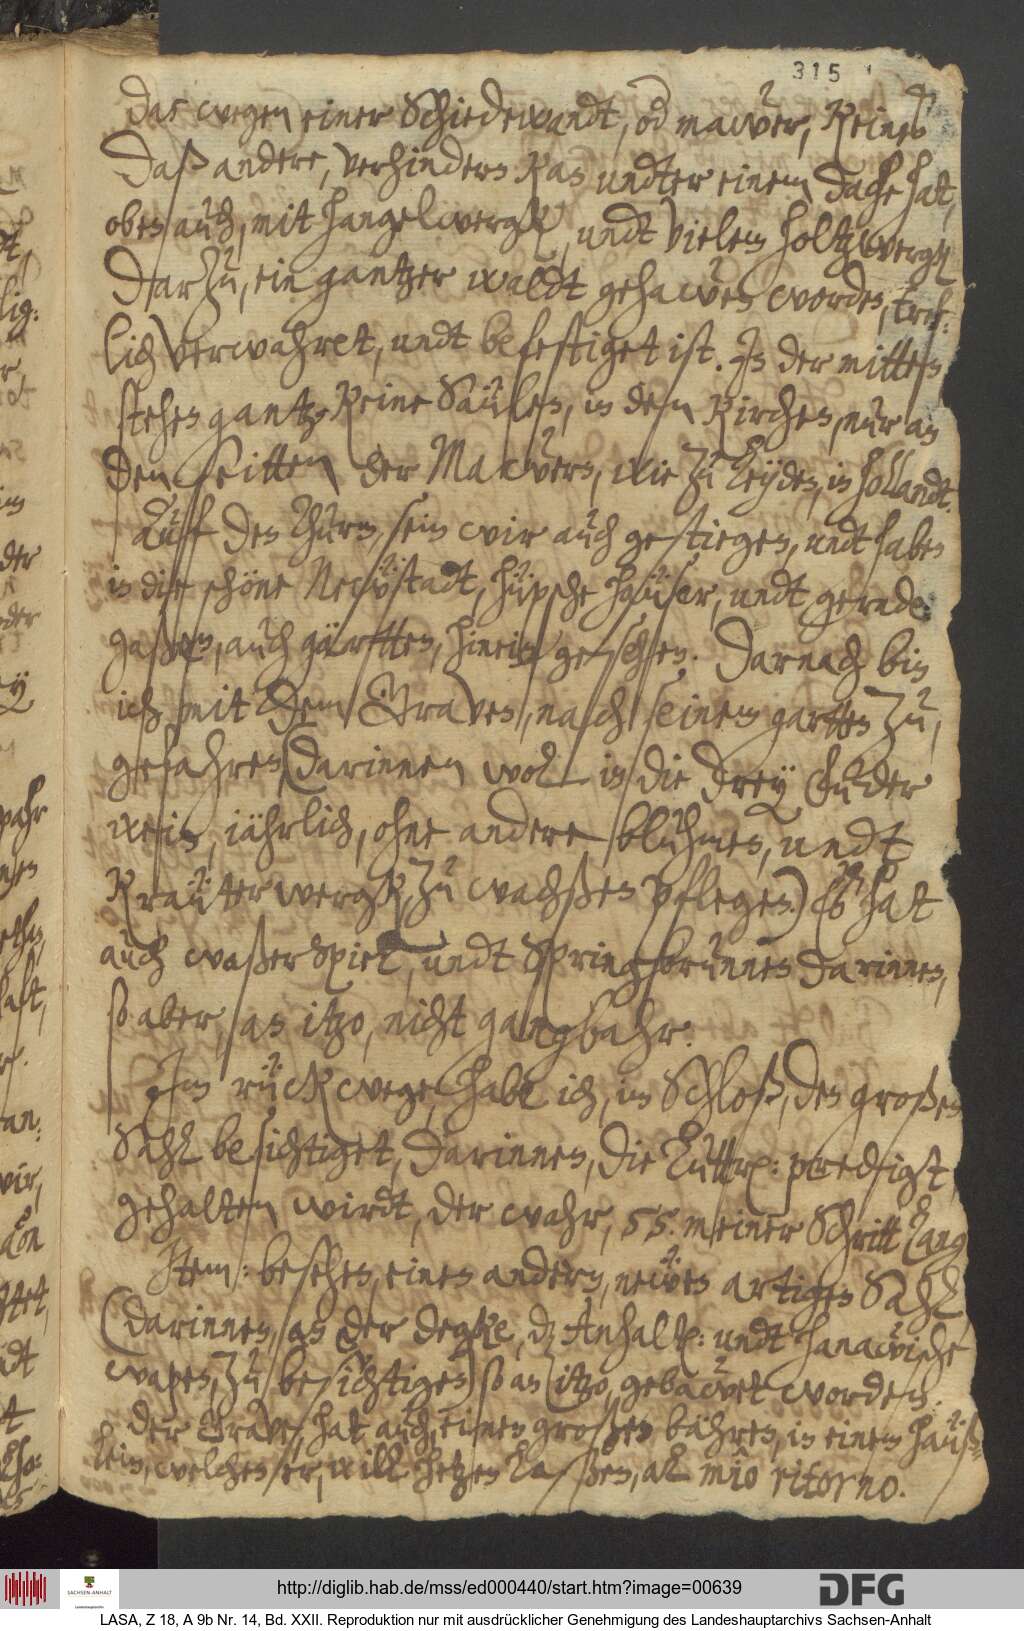 315
der wegen einer Schiedewandt, od mawer, keines
daß andere, verhindern kan, undter einem dache hat,
oben auch, mit hangelwergk, undt vielem holtzwergk
darzu, ein gantzer waldt gehawen worden, tref-
lich verwahret, undt befestiget ist. In der mitten
stehen gantz keine Säulen, in dem kirchen, nur an
den seitten der Mawern, wie zu Leyden, in hollandt.
Auff den Thurm, sein wir auch gestiegen, undt haben
in die schöne Newstadt, hüpsche häuser, undt gerade
gaßen, auch gärtten, hinein gesehen. Darnach bin
ich mit dem Graven, nach seinem gartten zu,
gefahren, (darinnen wol in die drey Fuder
wein, iährlich, ohne andere bluhmen, undt
kräutterwergk, zu wachßen pflegen.) Es hat
auch waßerspiel, undt Springbrunnen darinnen,
so aber, an itzo, nicht gangbahr.
Im rückwege, habe ich, im Schloß, den großen
Sahl besichtiget, darinnen, die Luttrische: predigt,
gehalten wirdt, der wahr, 55. meiner Schritt lang
Item: besehen, einen andern, newen artigen Sahl
(darinnen, an der degke, dz Anhaltische: undt hanawische
wapen, zu besichtigen) so an itzo, gebawet worden.
Der Grave, hat auch, einen großen bähren, in einem häuß-
lein, welchen er, will hetzen laßen, al mio ritorno.
http://diglib.hab.de/mss/ed000440/start.htm?image=00639
DFG
SACHSEN-ANHALT
LASA, Z 18, A 9b Nr. 14, Bd. XXII. Reproduktion nur mit ausdrücklicher Genehmigung des Landeshauptarchivs Sachsen-Anhalt